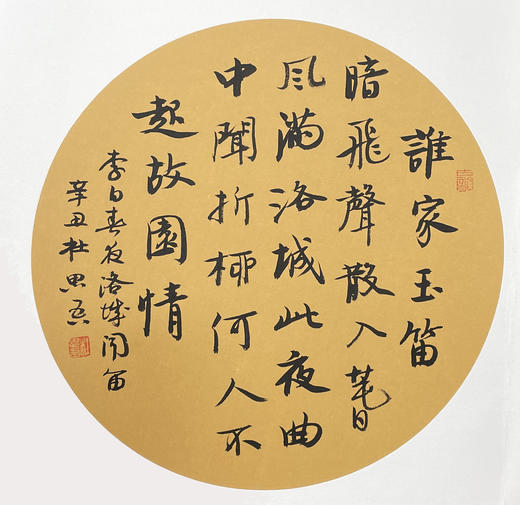 誰家玉笛
暗飛聲散入萅
風滿洛城此夜曲
中聞折柳何人不
起故園情
李白春夜洛城闻笛
辛丑杜思